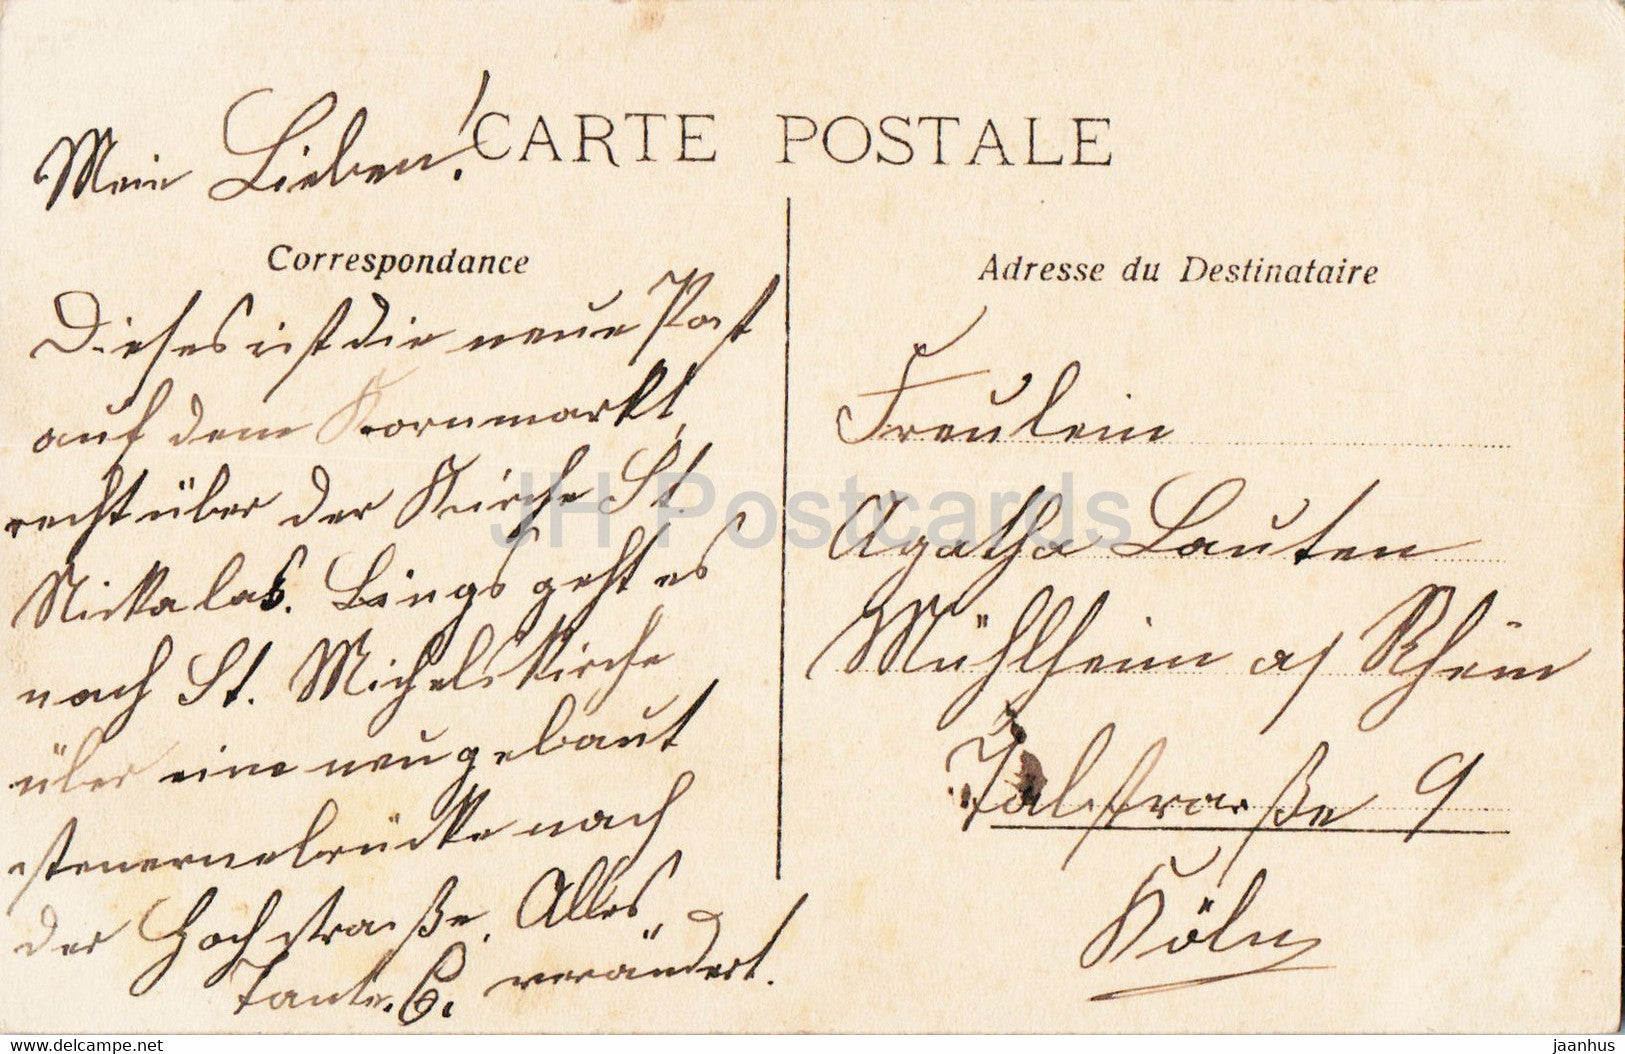 CARTE POSTALE
Mein Lieben!
Correspondance
Dieses ist die neue Post
auf dem Kornmarkt,
recht über der Kirche St.
Nickalas. Lings geht es
nach St. Michelskirche
über eine neugebaut
steuernebrücke nach
der Hochstraße. Alles
verändert.
Tante. C.
Adresse du Destinataire
Freulein
Agatha Lauten
Mühlheim a/ Rhein
Talstraße 9
Köln
JH Postcards
www.delcampe.net
jaanhus